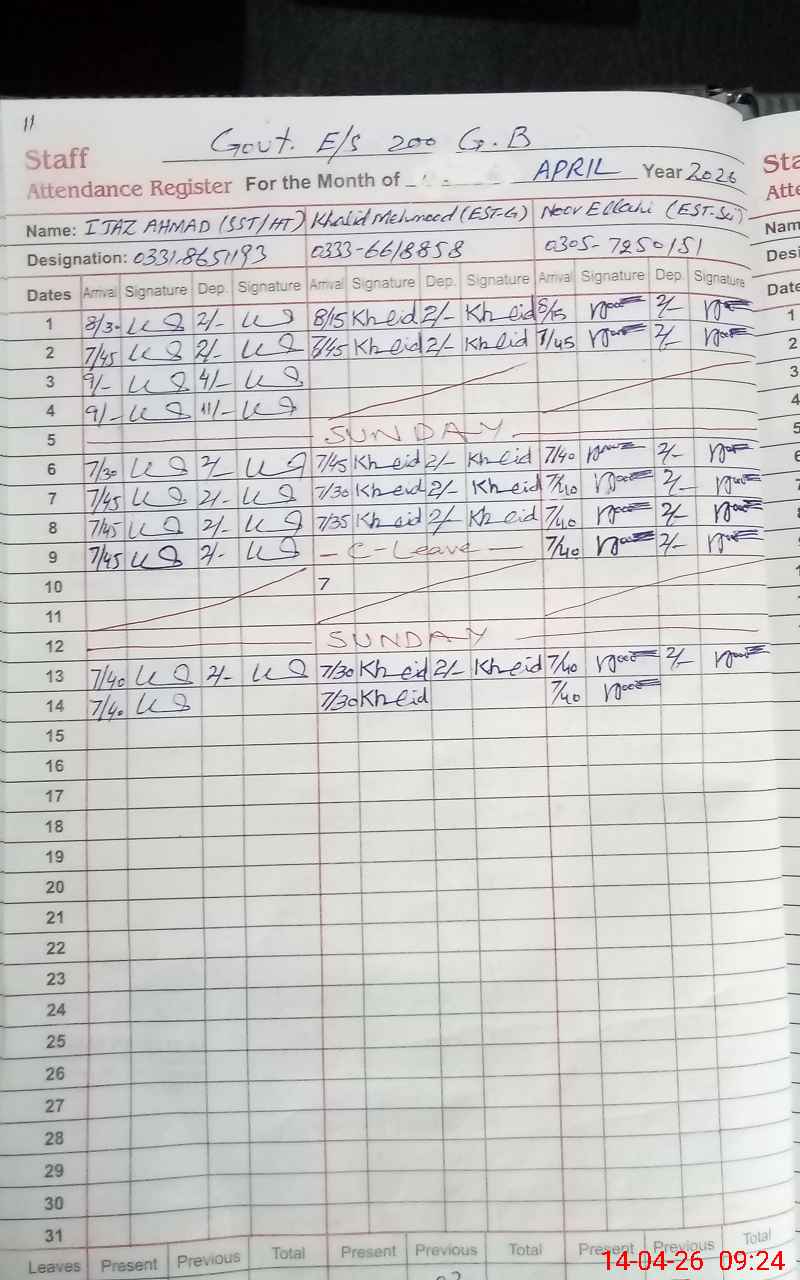 11
Govt. E/S 200 G.B
Staff
Attendance Register For the Month of APRIL Year 2026
Name: IJAZ AHMAD (SST/HT) Khalid Mehmood (EST-G) Noor Ellahi (EST-Sci)
Designation: 0331-8651193 0333-6618858 0305-7250151
Dates Arrival Signature Dep. Signature Arrival Signature Dep. Signature Arrival Signature Dep. Signature
1 8/30 2/- 8/15 Kheid 2/- Kheid 8/15 2/-
2 7/45 2/- 7/45 Kheid 2/- Kheid 7/45 2/-
3 9/- 4/-
4 9/- 11/-
5 SUNDAY
6 7/30 2/- 7/45 Kheid 2/- Kheid 7/40 2/-
7 7/45 2/- 7/30 Kheid 2/- Kheid 7/40 2/-
8 7/45 2/- 7/35 Kheid 2/- Kheid 7/40 2/-
9 7/45 2/- - C-Leave - 7/40 2/-
10 7
11
12 SUNDAY
13 7/40 2/- 7/30 Kheid 2/- Kheid 7/40 2/-
14 7/40 7/30 Kheid 7/40
15
16
17
18
19
20
21
22
23
24
25
26
27
28
29
30
31
Leaves Present Previous Total Present Previous Total Present Previous Total
Sta
Atte
Nam
Desi
Date
1
2
3
4
5
6
14-04-26 09:24